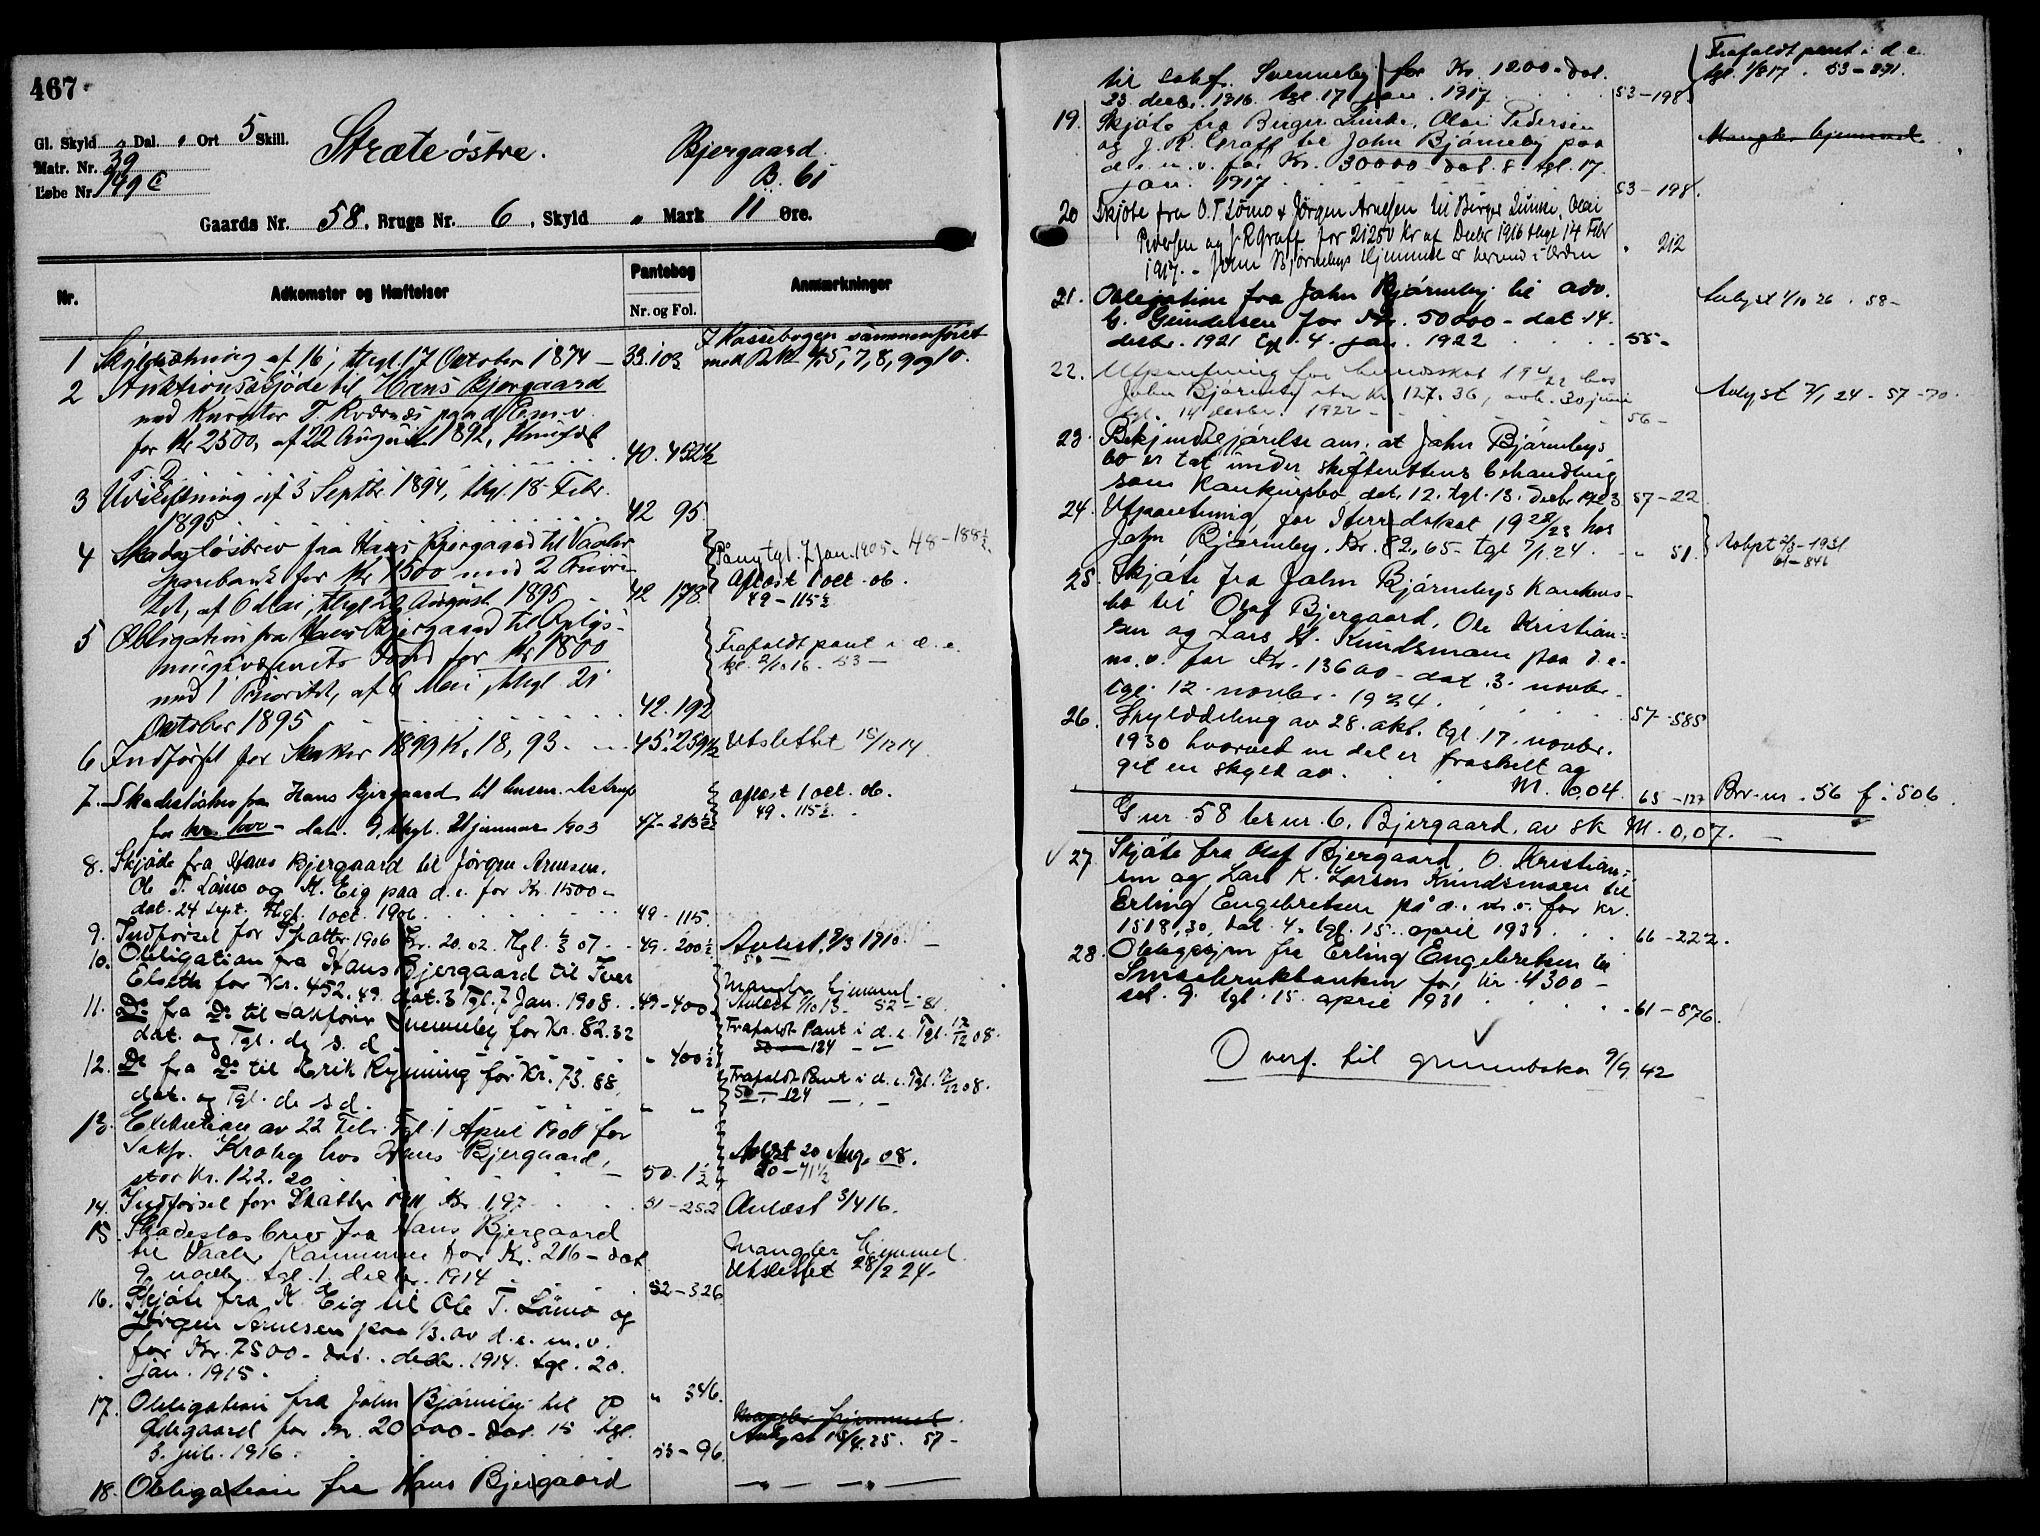 467
Gl. Skyld " Dal. " Ort 5 Skill.
Matr. Nr. 39
Løbe Nr. 199 c
Stræte østre.
Bjergaard
B. 61
Gaards Nr. 58, Brugs Nr. 6, Skyld " Mark 11 Øre.
Nr. Adkomster og Hæftelser Pantebog Nr. og Fol. Anmærkninger
1 Skyldsætning af 16, thgl. 17 October 1874 — 33.103 I Kassebogen sammenføiet
med B No 4, 5, 7, 8, 9 og 10.
2 Auktionsskjøde til Hans Bjergaard
med Kurator T. Kværnæs paa d. E. m. v.
for Kr 2500, af 22 August 1892, thinglæst
40. 452½
3 Udskiftning af 3 Septbr. 1894, thgl. 18 Febr.
1895 42 95
4 Skadesløsbrev fra Hans Bjergaard til Vaaler
Sparebank for Kr 1500 med 2 Priori-
tet, af 6 Mai, thgl 22 August 1895 - 42 178
Påny tgl. 7 jan. 1905. 48-188½
Aflæst 1 oct. 06.
49-115½
5 Obligation fra Hans Bjergaard til Oplys-
ningsvæsenets Fond for Kr 1800
med 1 Prioritet, af 6 Mai, thgl 21
October 1895 42.192
Frafaldt pant i d. e.
tgl. 2/10 16. 53 —
6 Indførsel for Skatter 1899 K. 18,93. 45.259½ Utslettet 15/12 14.
7. Skadesløsbrev fra Hans Bjergaard til Astrup
for kr. 1000 - dat. 9, thgl. 21 januar 1903 47-213½
aflæst 1 oct. 06.
49. 115½.
8. Skjøde fra Hans Bjergaard til Jørgen Arnesen,
Ole T. Lømo og K. Eig paa d. e. for Kr. 11500 -
dat. 24 sept. thgl. 1 oct. 1906. 49-115.
9. Indførsel for Skatter 1906 Kr. 20.02. Thgl. 6/3 07. 49-200½ Avlæst 9/3 1910. —
10. Obligation fra Hans Bjergaard til Iver
Elseth for Kr. 452.49 dat. 3 Tgl. 7 Jan. 1908. 49-400
Mangler hjemmel
Avlæst 7/10 13. 52-81.
11. Do fra Do til Sakfører Svenneby for Kr. 82.32
dat. og Tgl. de s. d. " 400½
Frafaldt Pant i d. e. Tgl. 12/12 08.
50 — 124 — " —
12. Do fra Do til Erik Rynning for Kr. 73.88,
dat. og Tgl. de s d. " "
Frafaldt Pant i d. e. Tgl. 12/12 08.
50 — 124 — " —
13. Exekution av 22 Febr. Tgl. 1 April 1908 for
Sakfr. Kraby hos Hans Bjergaard,
stor Kr. 122.20 50. 1½
Avlæst 20 Aug. 08.
50-71½
14. Indførsel for Skatter 1911 Kr. 1,97 51-252 Avlæst 3/4 16.
15. Skadesløsbrev fra Hans Bjergaard
til Vaaler Kommune for Kr. 216 - dat
9 novbr. tgl. 1 decbr. 1914 52-326
Mangler hjemmel
Utslettet 28/2 24.
16. Skjøte fra K. Eig til Ole T. Lömo og
Jørgen Arnesen paa 1/3. av d. e. m. v.
for Kr. 7500 - dat. decbr. 1914. tgl. 20.
jan. 1915. " 346.
17. Obligation fra John Bjørneby til P
Ødegaard for Kr. 20000 - dat. 15 tgl.
3. juli. 1916. 53-96
Mangler hjemmel.
Avlyst 15/4.25. 57 -
18. Obligation fra Hans Bjergaard — " — " —
til sakf. Svenneby for Kr. 1200 - dat.
23. decbr. 1916. tgl. 17 jan. 1917 53-198
Frafaldt pant i d. e.
tgl. 1/8 17. 53-291.
19. Skjøte fra Birger Linke, Olai Pedersen
og J. R. Graff til John Bjørneby paa
d. e. m. v. for Kr. 30000 - dat. 8. tgl. 17.
jan. 1917 53-198.
Mangler hjemmel
20 Skjøte fra O. T. Lømo & Jørgen Arnesen til Birger Linke, Olai
Pedersen og J. R. Graff for 21250 Kr af Decbr 1916 thgl 14 Febr
1917. - John Bjørnebys Hjemmel er herved i Orden " 212
21. Obligation fra John Bjørneby til adv.
G. Gundersen for Kr. 50000 - dat. 14.
decbr. 1921 tgl. 4. jan. 1922 55 -
Avlyst 1/10 26. 58 -
22. Utpantning for herredsskat 1921/22 hos
John Bjørneby stor Kr. 127.36, avh. 30 juni
tgl. 14 decbr. 1922 - 56 -
Avlyst 7/1 24 - 57 - 70.
23. Bekjendtgjørelse om. at John Bjørnebys
bo er tat under skifterettens behandling
som konkursbo, dat. 12. tgl. 13. decbr 1923 57-22
24. Utpantning for Herredsskat 1922/23 hos
John Bjørneby. Kr. 82,65 - tgl 7/1 24. " 51.
Avlyst 2/3-1931
61-846
25. Skjøte fra John Bjørnebys konkurs-
bo til Olaf Bjergaard, Ole Kristian-
sen og Lars K. Kundsmoen paa d. e.
m. v. for Kr. 13600 - dat. 3. novbr.
tgl. 12. novbr. 1924. 57-585
26. Skylddeling av 28. okt. tgl. 17. novbr.
1930 hvorved en del er fraskilt og
git en skyld av. M. 0,04. 65-127 Brv-nr. 56 f. 506.
G nr. 58 br nr. 6, Bjergaard, av sk M. 0,07. —
27. Skjøte fra Olaf Bjergaard, O. Kristian-
sen og Lars K. Larsen Kundsmoen til
Erling Engebretsen på d. e. m. v. for kr.
15181,30, dat. 4. tgl. 15. april 1931 66-222.
28. Obligasjon fra Erling Engebretsen til
Småbrukbanken for kr. 4300 -
dat. 9. tgl. 15. april 1931 61-876.
Overf. til grunnboka 9/9 42